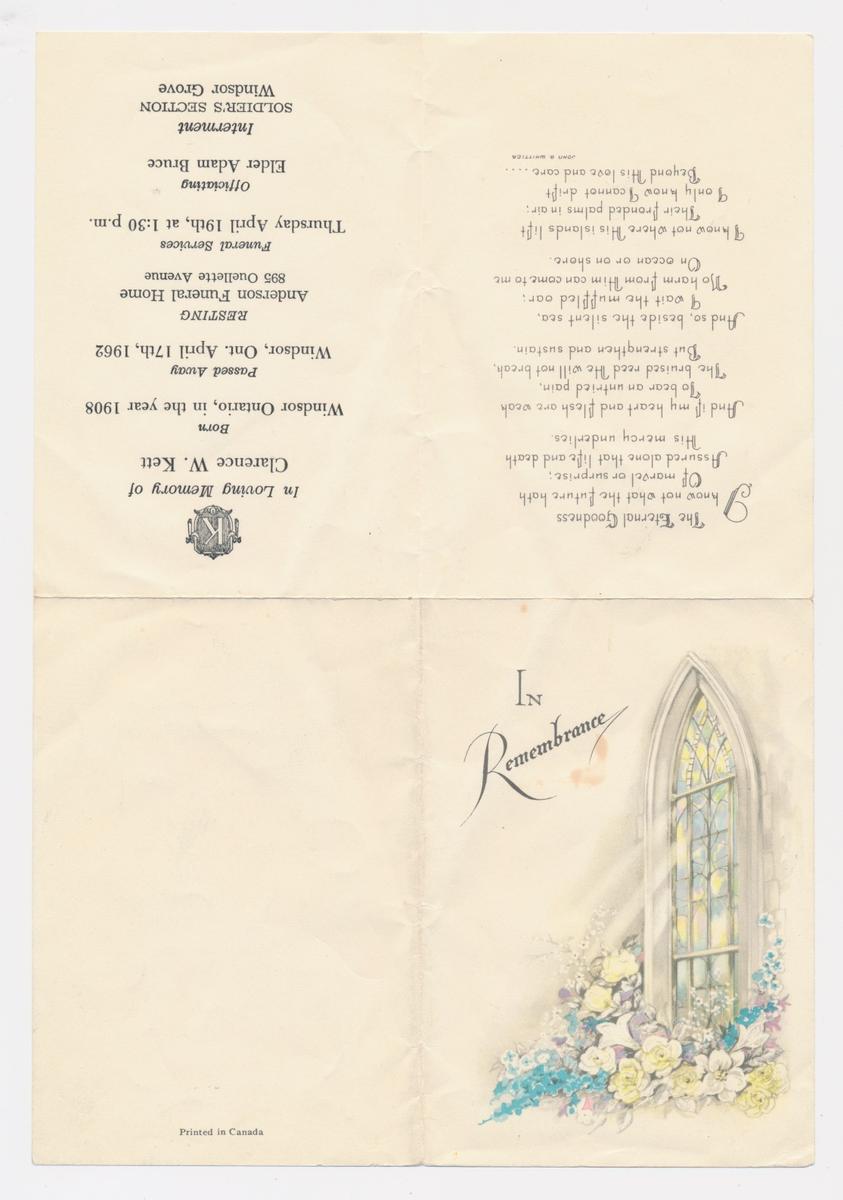 In
Remembrance
The Eternal Goodness
I know not what the future hath
Of marvel or surprise;
Assured alone that life and death
His mercy underlies.
And if my heart and flesh are weak
To bear an untried pain,
The bruised reed He will not break,
But strengthen and sustain.
And so, beside the silent sea,
I wait the muffled oar;
No harm from Him can come to me
On ocean or on shore.
I know not where His islands lift
Their fronded palms in air;
I only know I cannot drift
Beyond His love and care....
JOHN G WHITTIER
K
In Loving Memory of
Clarence W. Kett
Born
Windsor Ontario, in the year 1908
Passed Away
Windsor, Ont. April 17th, 1962
RESTING
Anderson Funeral Home
895 Ouellette Avenue
Funeral Services
Thursday April 19th, at 1:30 p.m.
Officiating
Elder Adam Bruce
Interment
SOLDIER'S SECTION
Windsor Grove
Printed in Canada